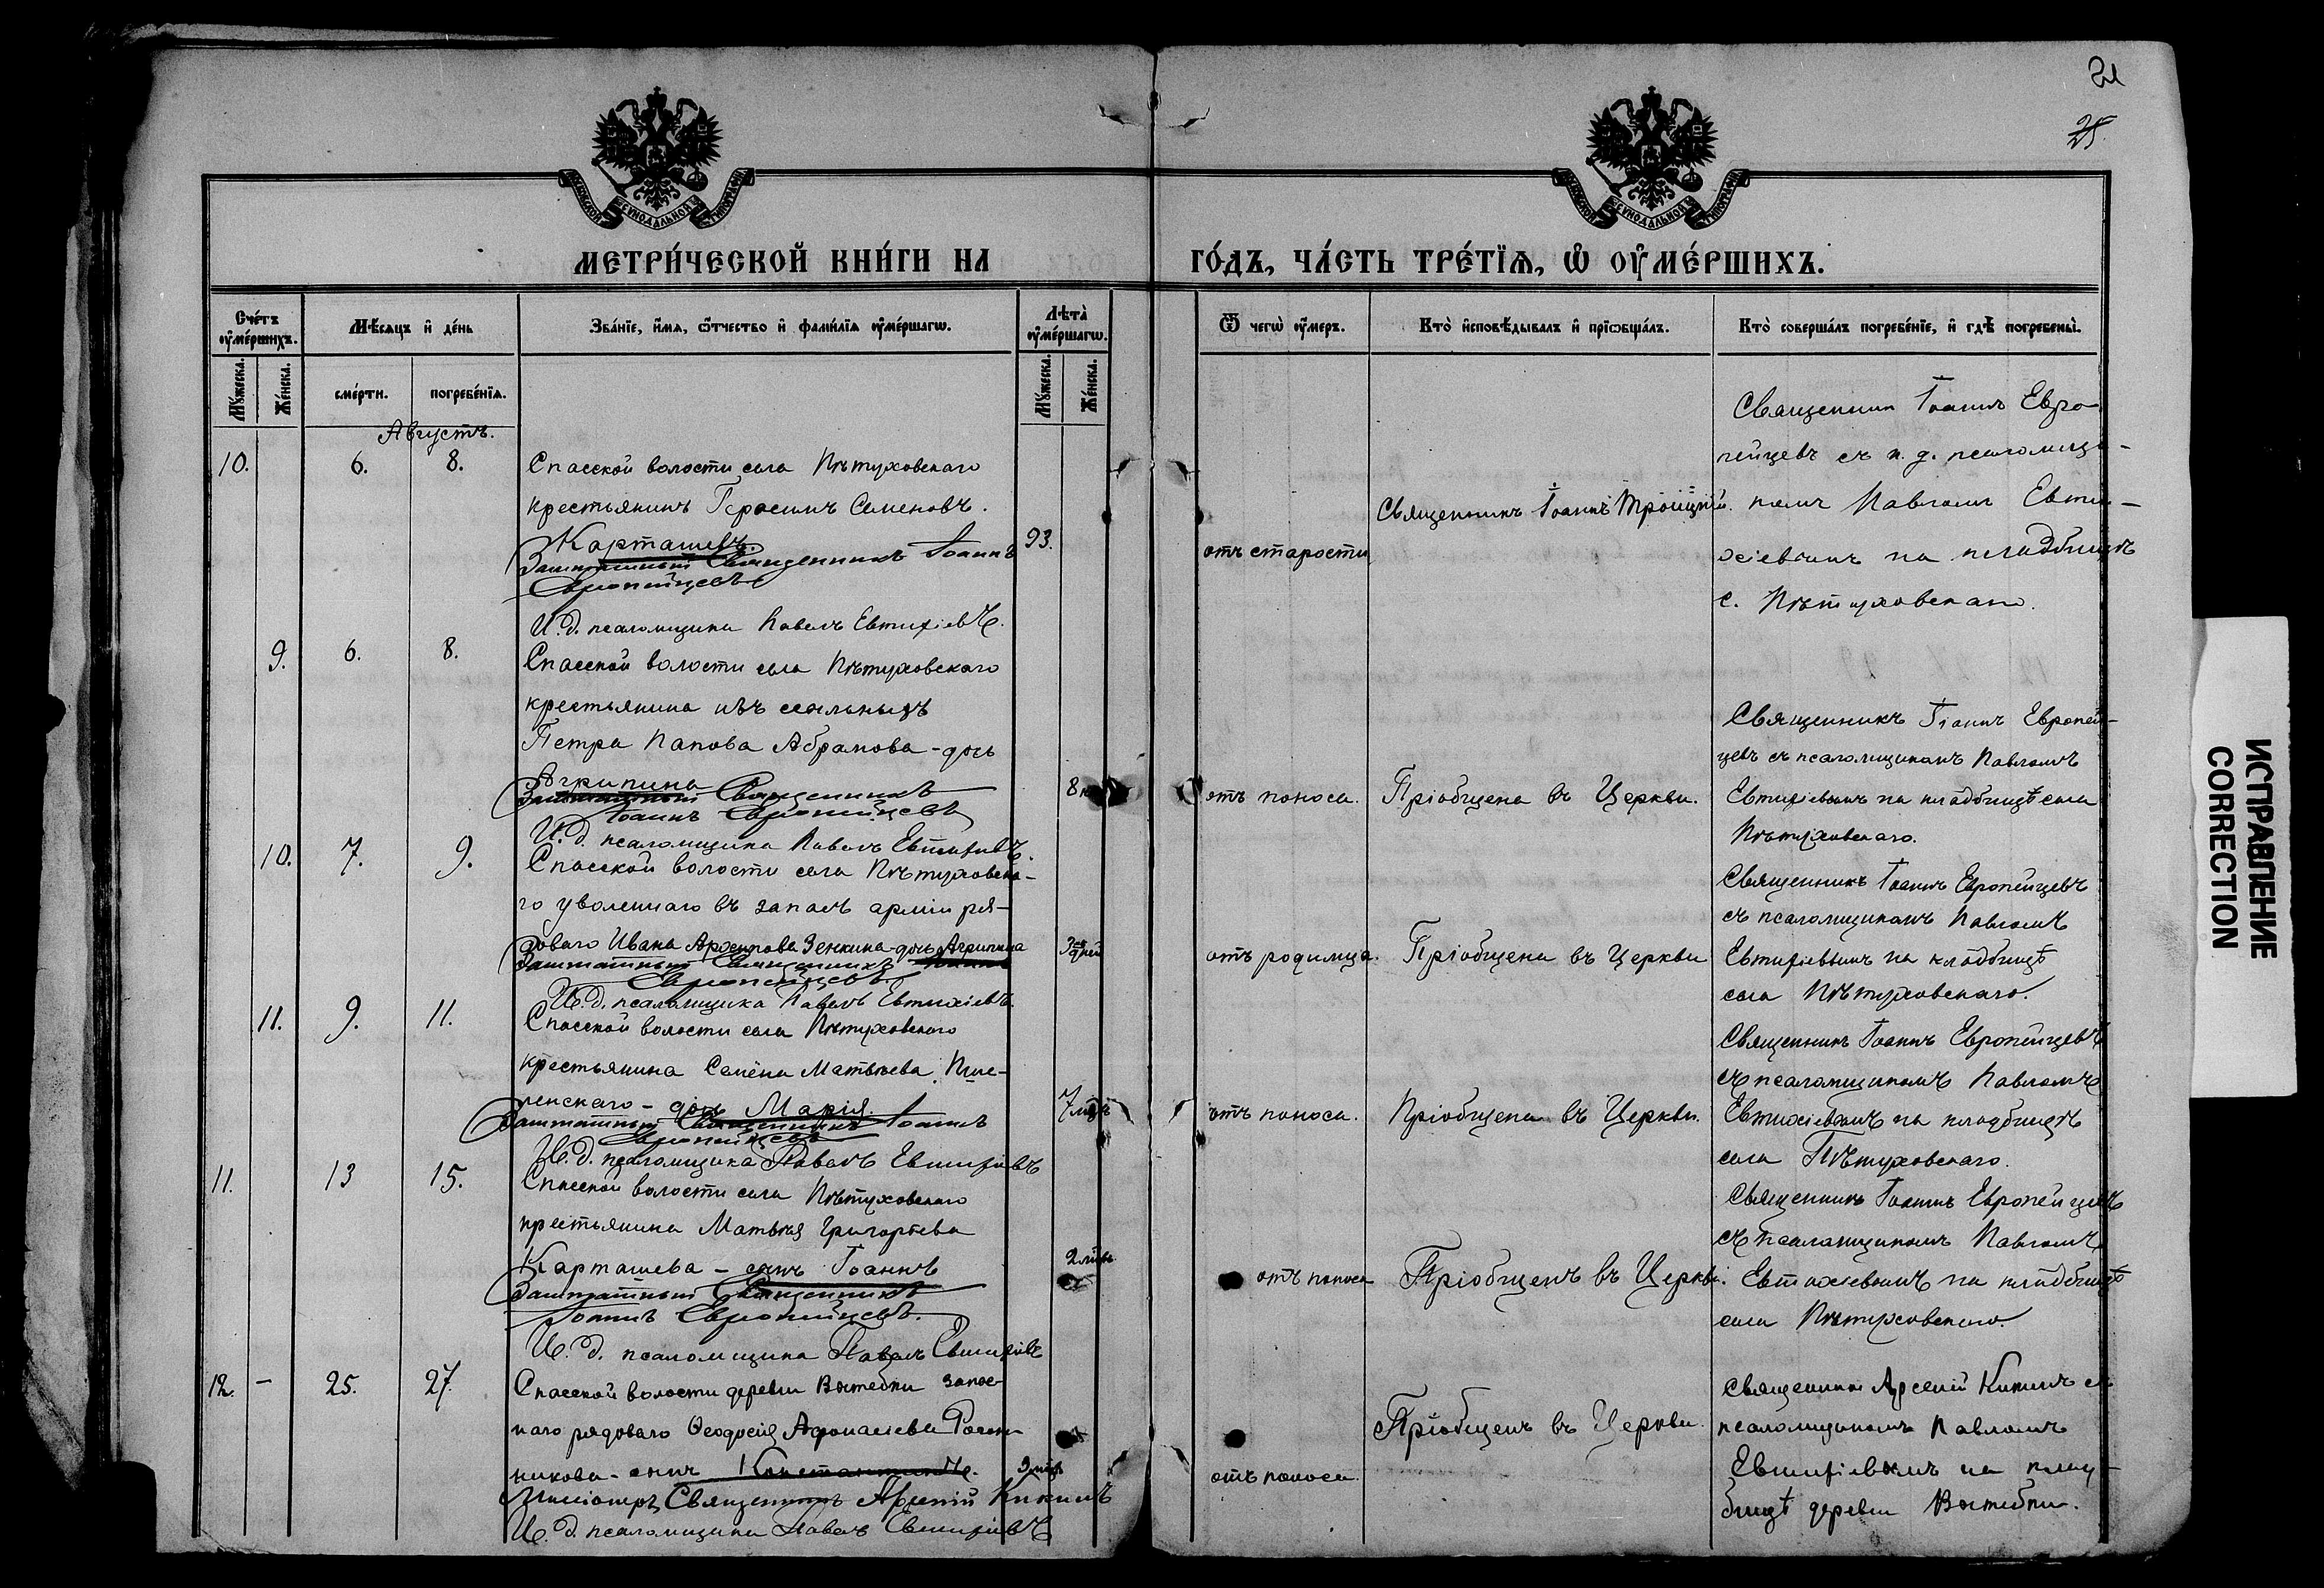 21
25
МОСКОВСКОЙ СѴНОДАЛЬНОЙ ТИПОГРАФІИ
МОСКОВСКОЙ СѴНОДАЛЬНОЙ ТИПОГРАФІИ
МЕТРИ́ЧЕСКОЙ КНИ́ГИ НА ГО́ДЪ, ЧА́СТЬ ТРЕ́ТЇѦ, Ѡ ОУ҆МЕ́РШИХЪ.
Сче́тъ оу҆ме́ршихъ.
Мѣ́сѧцъ и҆ де́нь
Зва́нїе, и҆́мѧ, ѻ҆́тчество и҆ фами́лїѧ оу҆ме́ршагѡ.
Лѣта̀ оу҆ме́ршагѡ.
Ѿ чегѡ̀ оу҆́меръ.
Кто̀ и҆сповѣ́дывалъ и҆ прїѡбща́лъ.
Кто̀ соверша́лъ погребе́нїе, и҆ гдѣ̀ погребены̀.
Мꙋ́жеска.
Же́нска.
сме́рти.
погребе́нїѧ.
Мꙋ́жеска.
Же́нска.
Августъ.
10.
6.
8.
Спасской волости села Пѣтуховскаго
крестьянинъ Герасимъ Семеновъ.
Карташевъ.
93.
Заштатный Священникъ Іоаннъ
Европейцевъ
И.д. псаломщика Павелъ Евтихіевъ.
отъ старости
Священникъ Іоаннъ Троицкій.
Священник Іоаннъ Евро-
пейцевъ съ и. д. псаломщи-
комъ Павломъ Евти-
хіевымъ на кладбищѣ
с. Пѣтуховскаго.
9.
6.
8.
Спасской волости села Пѣтуховскаго
крестьянина изъ ссыльныхъ
Петра Попова Абрамова - дочь
Агрипина
8
Заштатный Священникъ
Іоаннъ Европейцевъ
И.д. псаломщика Павелъ Евтихіевъ.
отъ поноса.
Пріобщена въ Церкви.
Священникъ Іоаннъ Европей-
цевъ съ псаломщикомъ Павломъ
Евтихіевымъ на кладбищѣ села
Пѣтуховскаго.
10.
7.
9.
Спасской волости села Пѣтуховска-
го уволеннаго въ запасъ арміи ря-
доваго Ивана Архипова Зенкина - дочь Агрипина
3 дней
Заштатный Священникъ Іоаннъ
Европейцевъ.
И.д. псаломщика Павелъ Евтихіевъ.
отъ родимца.
Пріобщена въ Церкви
Священникъ Іоаннъ Европейцевъ
съ псаломщикомъ Павломъ
Евтихіевымъ на кладбищѣ
села Пѣтуховскаго.
11.
9.
11.
Спасской волости села Пѣтуховскаго
крестьянина Семена Матвѣева
ленскаго - дочь Марія.
7 мѣ
Заштатный Священникъ Іоаннъ
Европейцевъ
И.д. псаломщика Павелъ Евтихіевъ
отъ поноса.
Пріобщена въ Церкви.
Священникъ Іоаннъ Европейцевъ
съ псаломщикомъ Павломъ
Евтихіевымъ на кладбищѣ
села Пѣтуховскаго.
11.
13
15.
Спасской волости села Пѣтуховскаго
крестьянина Матвѣя Григорьева
Карташева - сынъ Іоаннъ
2 мѣс
Заштатный Священникъ
Іоаннъ Европейцевъ.
И.д. псаломщика Павелъ Евтихіевъ
отъ поноса
Пріобщенъ въ Церкви.
Священникъ Іоаннъ Европейцевъ
съ псаломщикомъ Павломъ
Евтихіевымъ на кладбищѣ
села Пѣтуховскаго.
12.
-
25.
27.
Спасской волости деревни Вытебки запас-
наго рядоваго Ѳеодосія Афонасіева
никова - сынъ Константинъ.
Миссіонеръ Священникъ Арсеній Кикинъ
И.д. псаломщика Павелъ Евтихіевъ
отъ поноса.
Пріобщенъ въ Церкви.
Священникъ Арсеній Кикинъ съ
псаломщикомъ Павломъ
Евтихіевымъ на клад-
бищѣ деревни Вытебки.
ИСПРАВЛЕНИЕ
CORRECTION